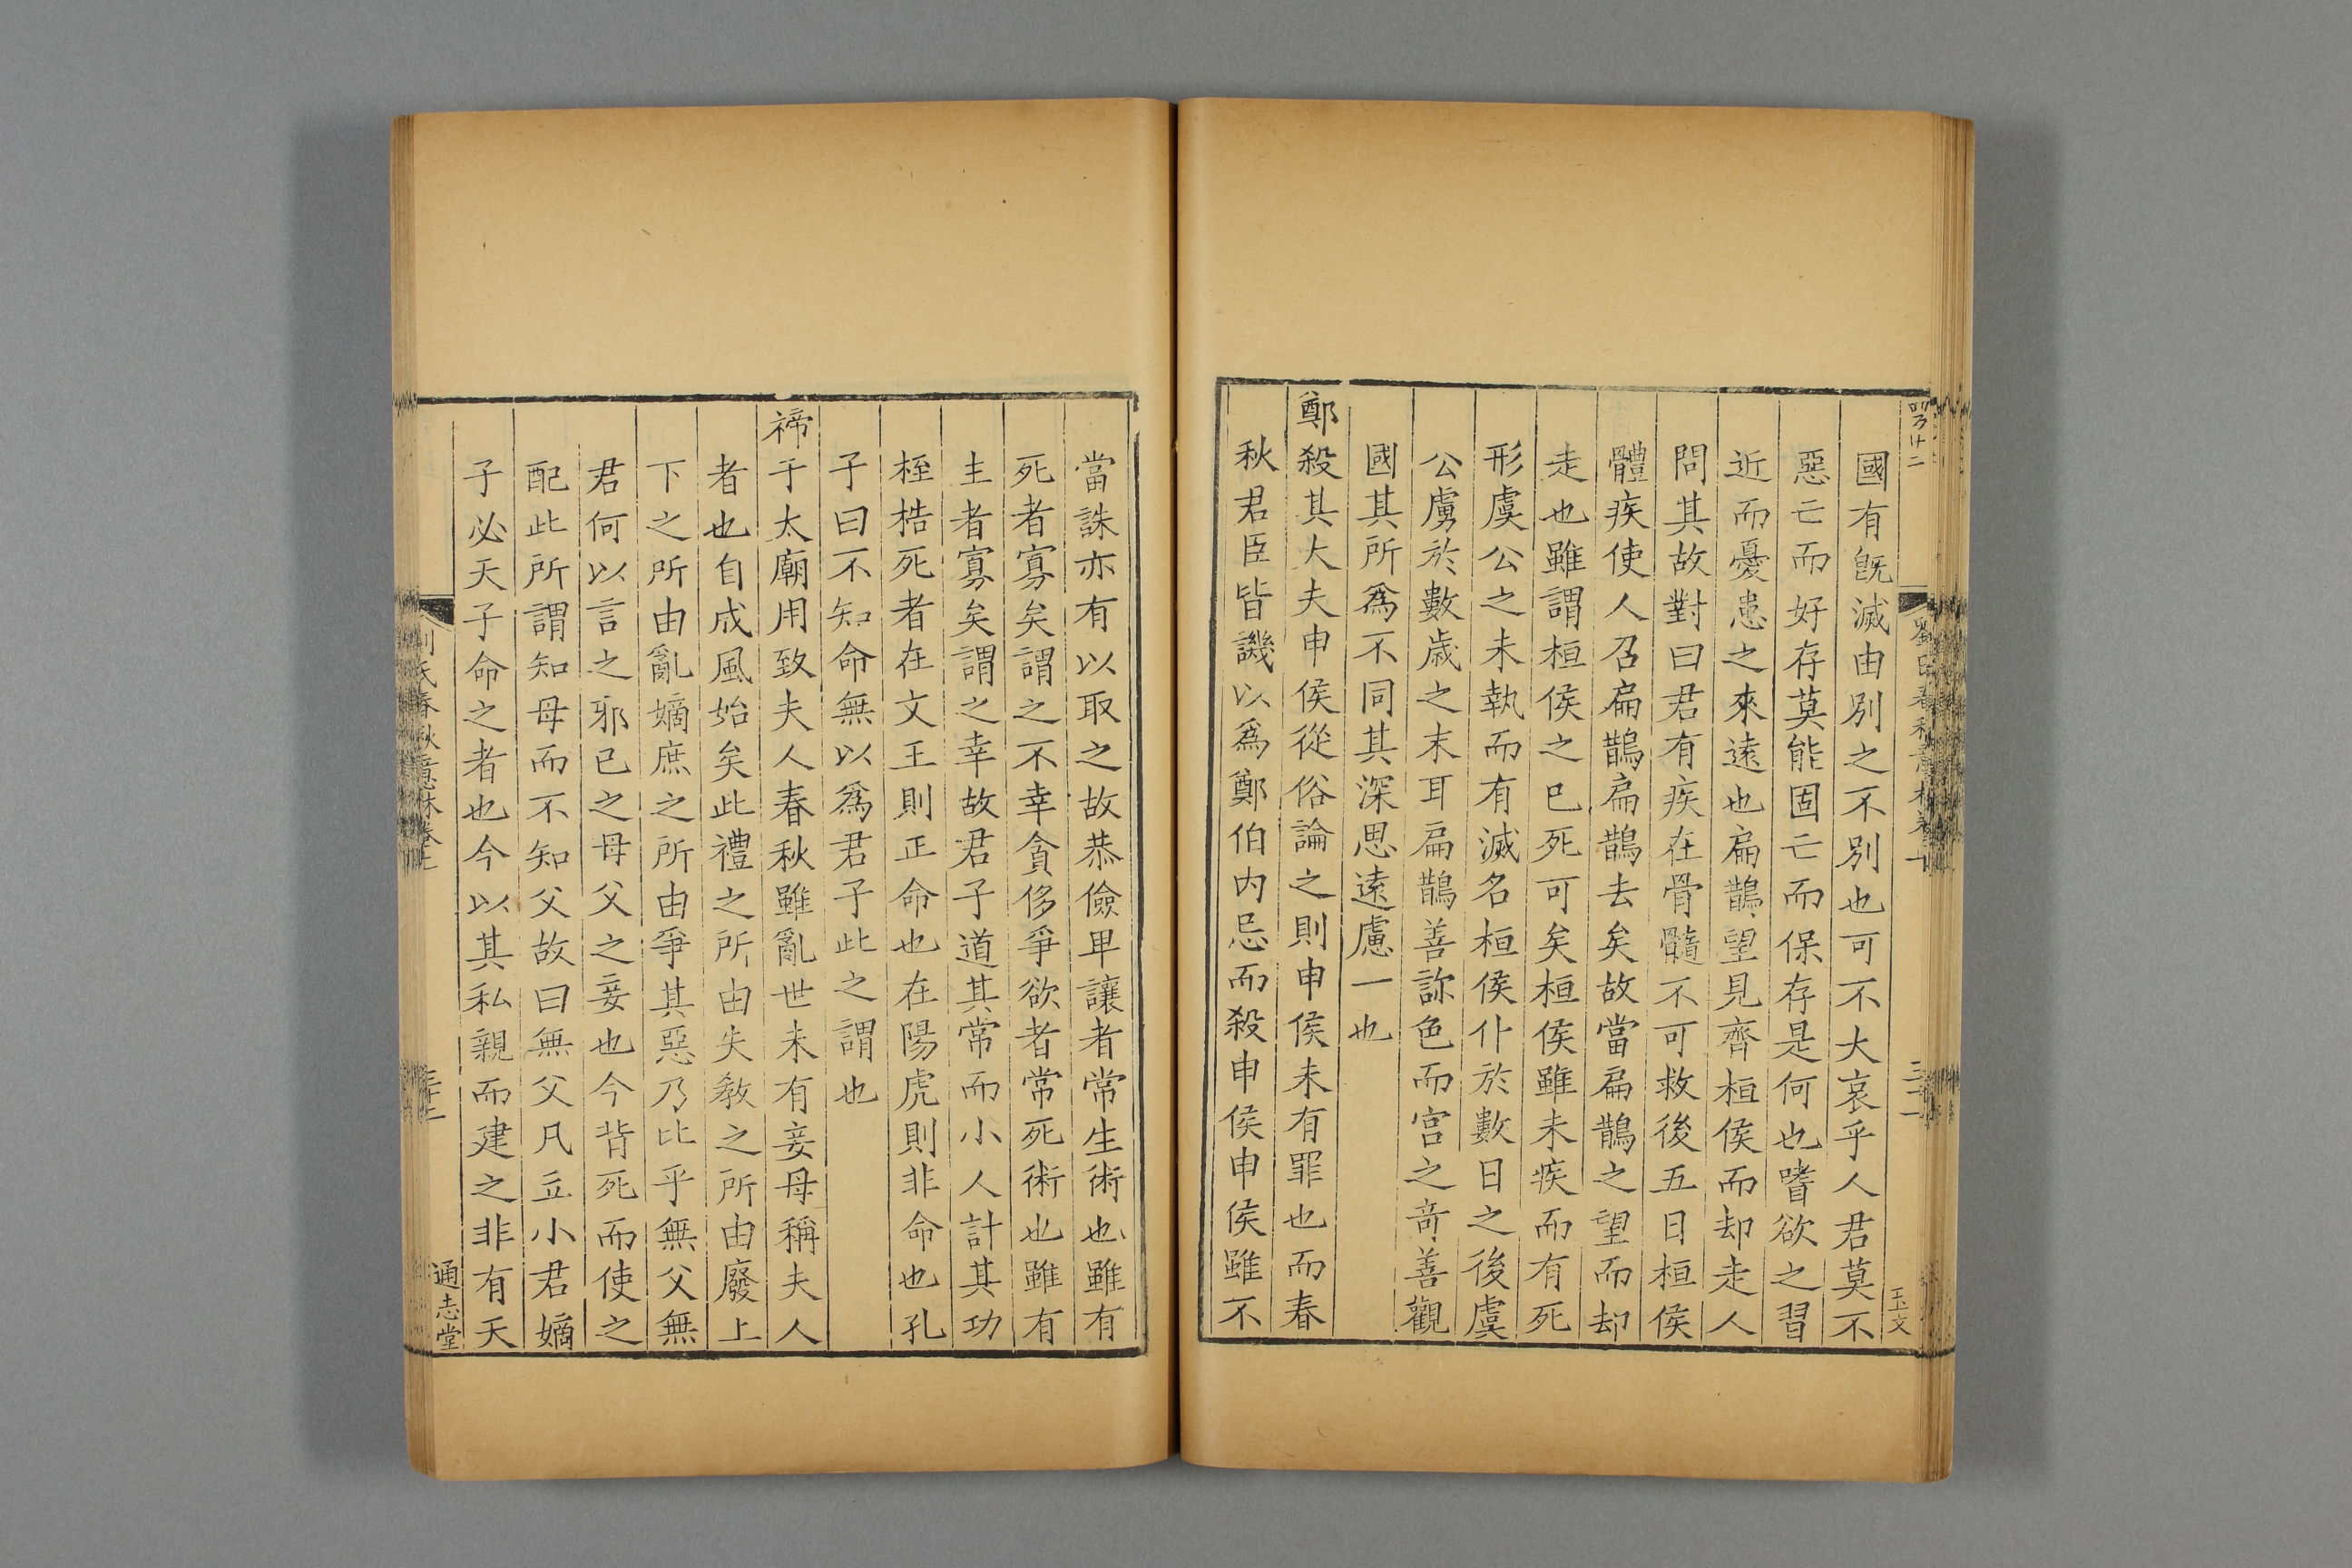 國有旣滅由別之不別也可不大哀乎人君莫不
惡亡而好存莫能固亡而保存是何也嗜欲之習
近而憂患之來遠也扁鵲望見齊桓侯而却走人
問其故對曰君有疾在骨髓不可救後五日桓侯
體疾使人召扁鵲扁鵲去矣故當扁鵲之望而却
走也雖謂桓侯之已死可矣桓侯雖未疾而有死
形虞公之未執而有滅名桓侯仆於數日之後虞
公虜於數歲之末耳扁鵲善診色而宫之奇善觀
國其所爲不同其深思遠慮一也
鄭殺其大夫申侯從俗論之則申侯未有罪也而春
秋君臣皆譏以爲鄭伯内忌而殺申侯申侯雖不
當誅亦有以取之故恭儉卑讓者常生術也雖有
死者寡矣謂之不幸貪侈爭欲者常死術也雖有
主者寡矣謂之幸故君子道其常而小人計其功
桎梏死者在文王則正命也在陽虎則非命也孔
子曰不知命無以爲君子此之謂也
禘于太廟用致夫人春秋雖亂世未有妾母稱夫人
者也自成風始矣此禮之所由失教之所由廢上
下之所由亂嫡庶之所由爭其惡乃比乎無父無
君何以言之邪已之母父之妾也今背死而使之
配此所謂知母而不知父故曰無父凡立小君嫡
子必天子命之者也今以其私親而建之非有天
劉氏春秋意林卷上
三十二
通志堂